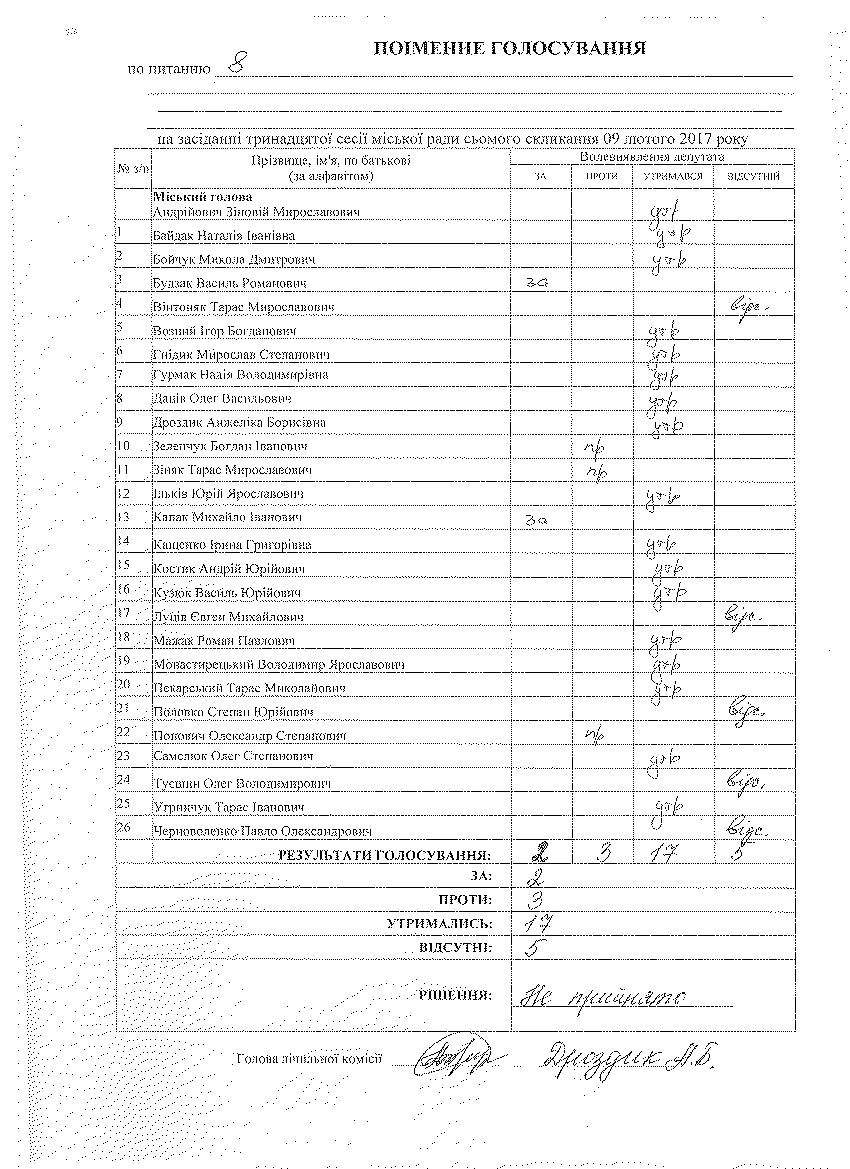 ПОІМЕННЕ ГОЛОСУВАННЯ
по питанню 8
на засіданні тринадцятої сесії міської ради сьомого скликання 09 лютого 2017 року
№ з/п Прізвище, ім'я, по батькові (за алфавітом) Волевиявлення депутата
ЗА ПРОТИ УТРИМАВСЯ ВІДСУТНІЙ
Міський голова
Андрійович Зіновій Мирославович утр
1 Байдак Наталія Іванівна утр
2 Бойчук Микола Дмитрович утр
3 Будзак Василь Романович за
4 Вінтоняк Тарас Мирославович відс.
5 Возний Ігор Богданович утр
6 Гнідик Мирослав Степанович утр
7 Гурмак Надія Володимирівна утр
8 Данів Олег Васильович утр
9 Дроздик Анжеліка Борисівна утр
10 Зеленчук Богдан Іванович пр
11 Зіняк Тарас Мирославович пр
12 Ільків Юрій Ярославович утр
13 Капак Михайло Іванович за
14 Кащенко Ірина Григорівна утр
15 Костик Андрій Юрійович утр
16 Кузюк Василь Юрійович утр
17 Луців Євген Михайлович відс.
18 Мажак Роман Павлович утр
19 Монастирецький Володимир Ярославович утр
20 Пекарський Тарас Миколайович утр
21 Половко Степан Юрійович відс.
22 Попович Олександр Степанович пр
23 Самелюк Олег Степанович утр
24 Туєшин Олег Володимирович відс.
25 Угринчук Тарас Іванович утр
26 Черноволенко Павло Олександрович відс.
РЕЗУЛЬТАТИ ГОЛОСУВАННЯ: 2 3 17 5
ЗА: 2
ПРОТИ: 3
УТРИМАЛИСЬ: 17
ВІДСУТНІ: 5
РІШЕННЯ: Не прийнято
Голова лічильної комісії Дроздик А.Б.